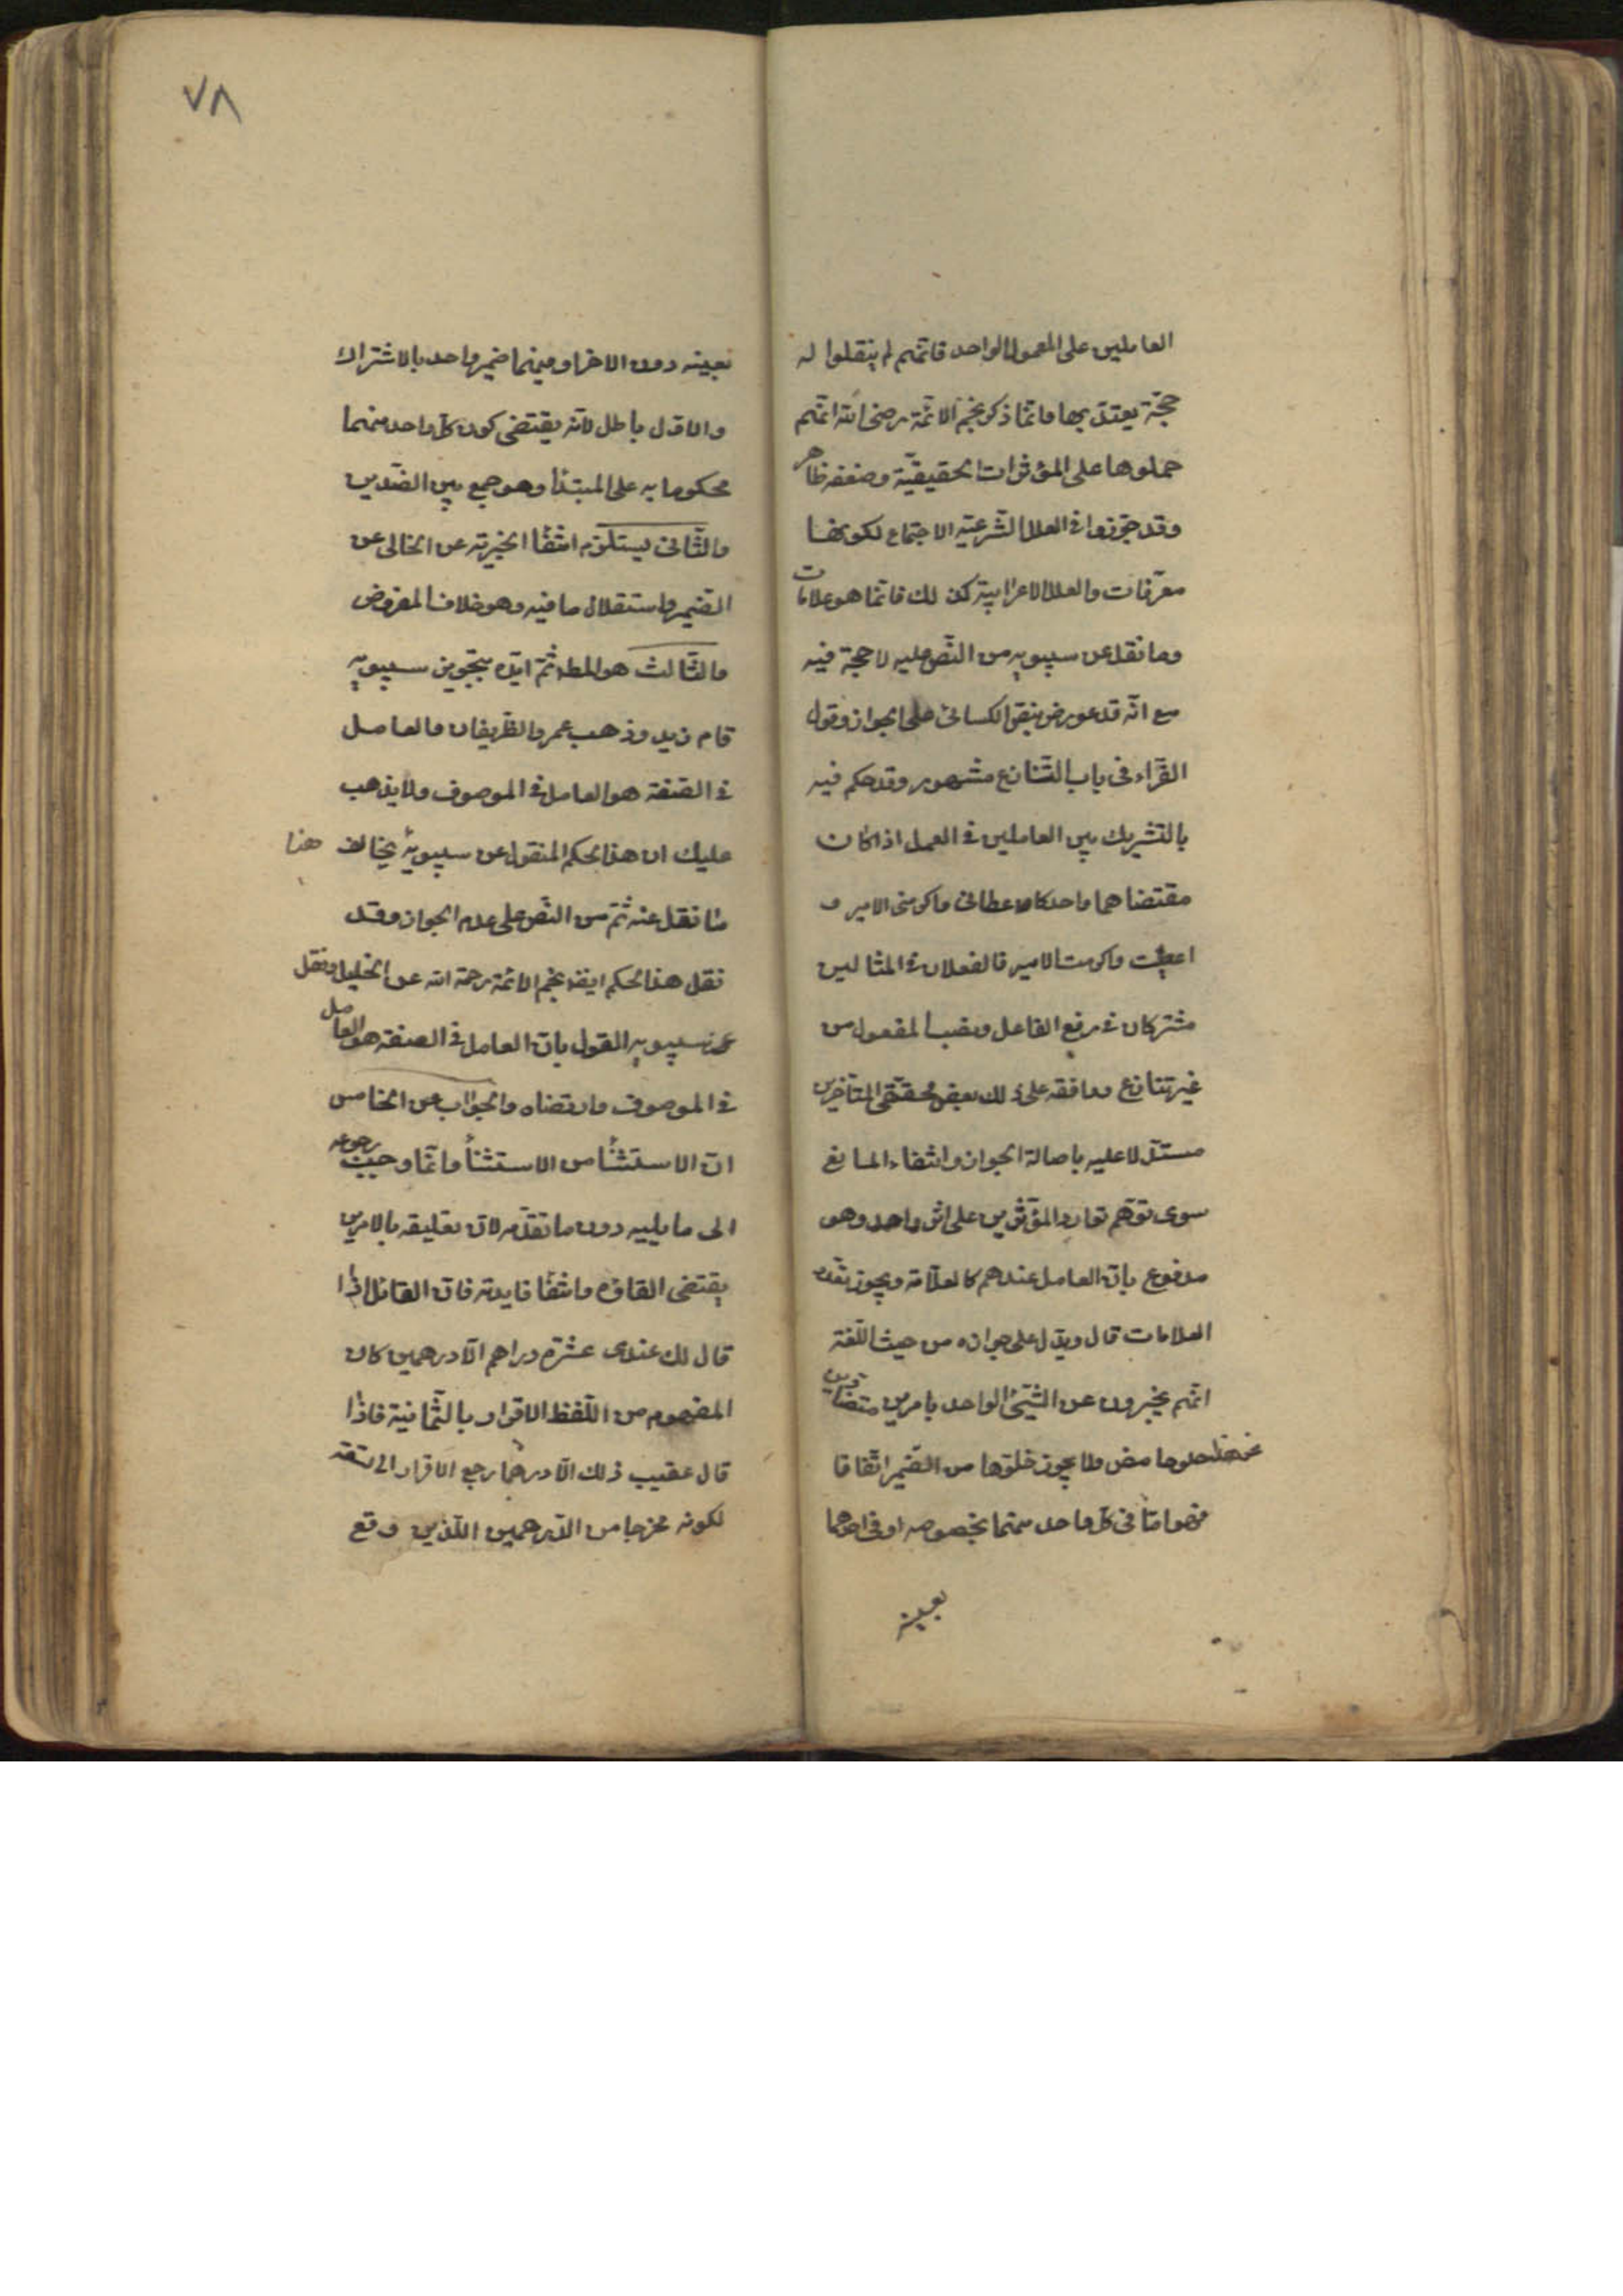 العاملين على المعمول الواحد فانّهم لم ينقلوا له
حجّة يعتدّ بها وانّما ذكر نجم الائمّة رضى الله انّهم
حملوها على المؤثرات الحقيقيّة وضعفه ظاهر
وقد جوّزوا فى العلل الشّرعيّه الاجتماع لكونها
معرّفات والعلل الاعرابيّة كذلك فانّما هو علامات
وما نقل عن سيبويه من النّص عليه لا حجة فيه
مع انّه قد عورض بنصّ الكسائى على الجواز وقول
الفرّاء فى باب التّنازع مشهور وقد حكم فيه
بالتشريك بين العاملين فى العمل اذا كان
مقتضاهما واحدا كاعطانى واكرمنى الامير و
اعطيت واكرمت الامير فالفعلان فى المثالين
مشتركان فى رفع الفاعل ونصب المفعول من
غير تنازع ووافقه على ذلك بعض محققى المتأخرين
مستدّلا عليه باصالة الجواز وانتفاء المانع
سوى توهّم توارد المؤثرين على اثر واحد وهو
مدفوع بانّ العامل عندهم كالعلّامة ويجوز تعدد
العلامات قال ويدّل على جوازه من حيث اللّغة
انّهم يخبرون عن الشّئ الواحد بامرين متضادين
نحو هذا حلو حامض ولا يجوز خلوّها من الضّمير اتّفاقا
فهو امّا فى كلّ واحد منهما بخصوصه او فى احدهما
بعينه
٧٨
بعينه دون الاخر او فيهما ضمير واحد بالاشتراك
والاوّل باطل لانّه يقتضى كون كلّ واحد منهما
محكوما به على المبتدا وهو جمع بين الضّدين
والثّانى يستلزم انتفا الخبريّه عن الخالى عن
الضّمير واستقلال ما فيه وهو خلاف المفروض
والثّالث هو المط ثمّ ايّده بتجويز سيبويه
قام زيد وذهب عمرو الظّريفان والعامل
فى الصّفة هو العامل فى الموصوف ولا يذهب
عليك ان هذا الحكم المنقول عن سيبويه يخالف هنا
ما نقل عنه ثمّ من النّص على عدم الجواز وقد
نقل هذا الحكم ايضا نجم الائمّة رحمة الله عن الخليل ونقل
عن سيبويه القول بانّ العامل فى الصفة هو العامل
فى الموصوف وارتضاه والجواب عن الخامس
انّ الاستثنا من الاستثنا وانّما وجب رجوعه
الى ما يليه دون ما تقدّمه لانّ تعليقه بالامرين
يقتضى الغاؤه وانتفا فايدته فانّ القائل اذا
قال لك عندى عشرة دراهم الّا درهمين كان
المفهوم من اللّفظ الاقرار بالثّمانية فاذا
قال عقيب ذلك الّا درهما رجع الاقرار الى تسعة
لكونه مخرجا من الدّرهمين اللّذين وقع